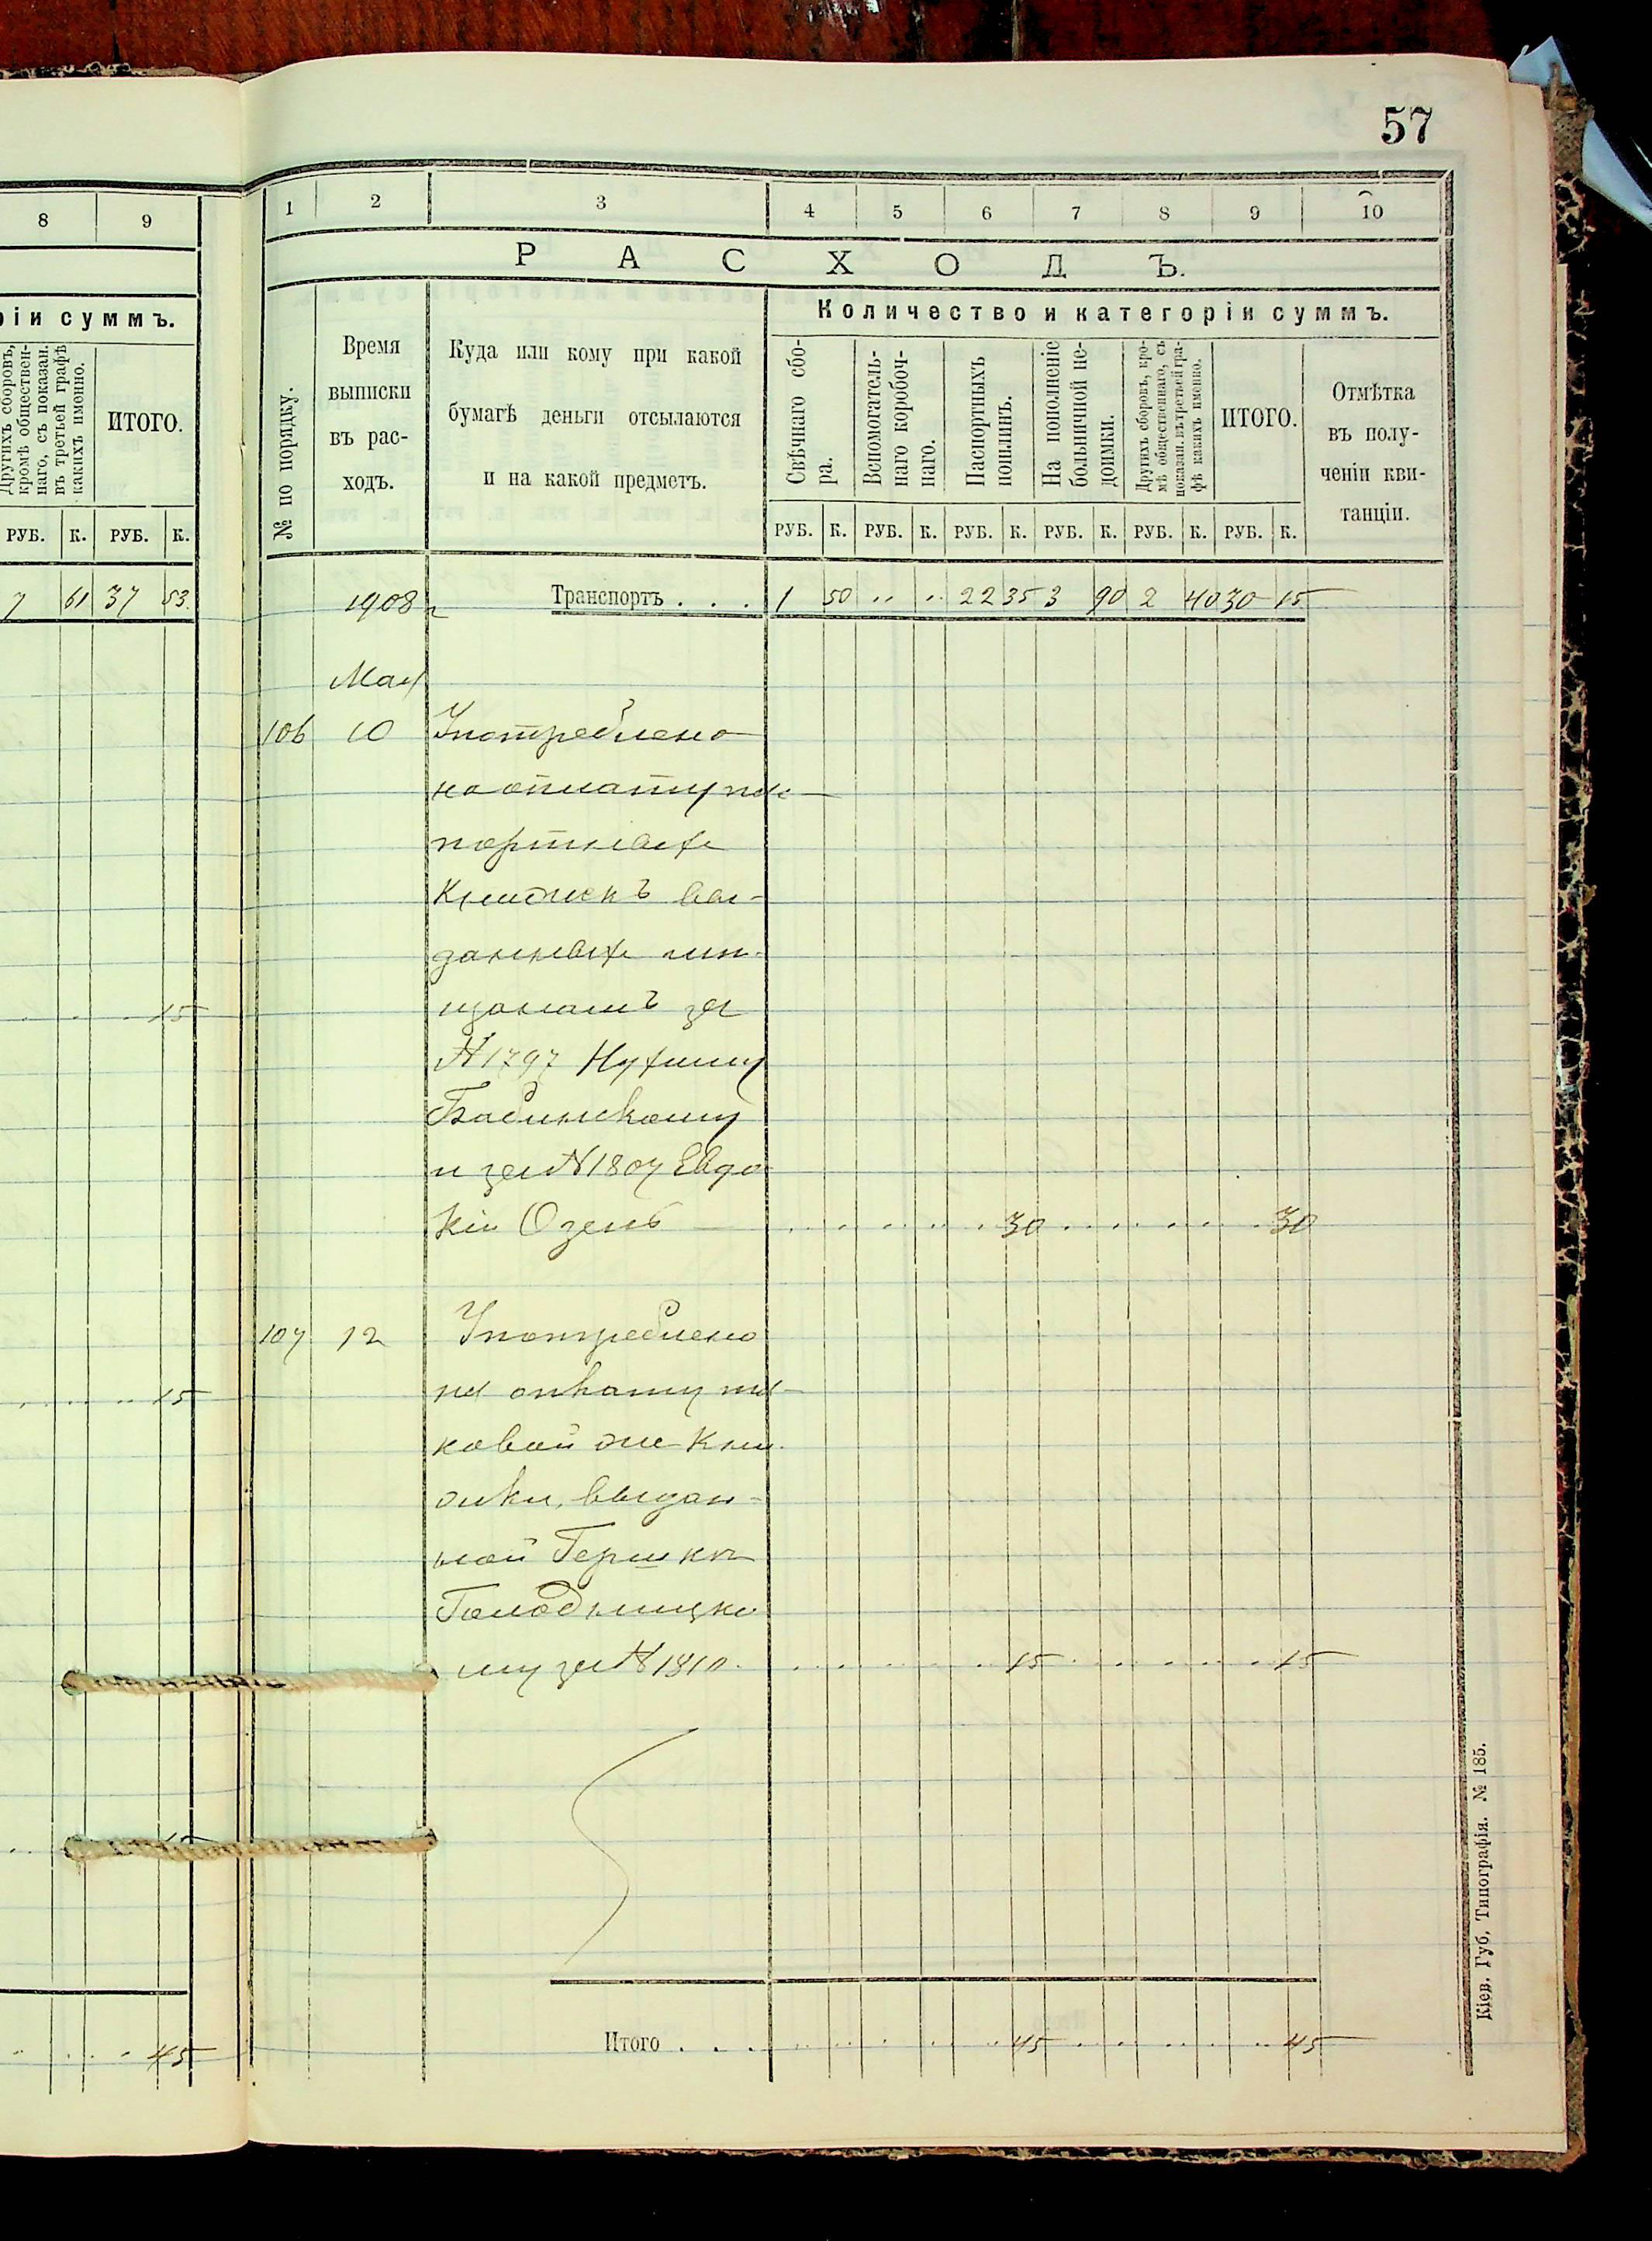 57
8 9
ріи суммъ.
Другихъ сборовъ,
кромѣ обществен-
наго, съ показан.
въ третьей графѣ
какихъ именно.
ИТОГО.
РУБ. К. РУБ. К.
7 61 37 53.
15
15
45
1 2 3 4 5 6 7 8 9 10
РАСХОДЪ.
№ по порядку.
Время
выписки
въ рас-
ходъ.
Куда или кому при какой
бумагѣ деньги отсылаются
и на какой предметъ.
Количество и категоріи суммъ.
Свѣчнаго сбо-
ра.
Вспомогатель-
наго коробоч-
наго.
Паспортныхъ
пошлинъ.
На пополненіе
больничной не-
доимки.
Другихъ сборовъ, кро-
мѣ общественнаго, съ
показан. въ третьей гра-
фѣ какихъ именно.
ИТОГО.
Отмѣтка
въ полу-
ченіи кви-
танціи.
РУБ. К. РУБ. К. РУБ. К. РУБ. К. РУБ. К. РУБ. К.
1908 г Транспортъ . . . 1 50 " " 22 35 3 90 2 40 30 15
Мая
106 10 Употреблено
на оплату пас-
портныхъ
Книжекъ вы-
данныхъ мѣ-
щанамъ за
№ 1797 Нухиму
Бабинскому
и за № 1807 Евдо
кіи Озень 30 30
107 12 Употреблено
на оплату та-
ковой же Кни-
жки, выдан-
ной Гершку
Голодницко
му за № 1810. 15 15
Итого . . . 45 45
Кіев. Губ. Типографія. № 185.